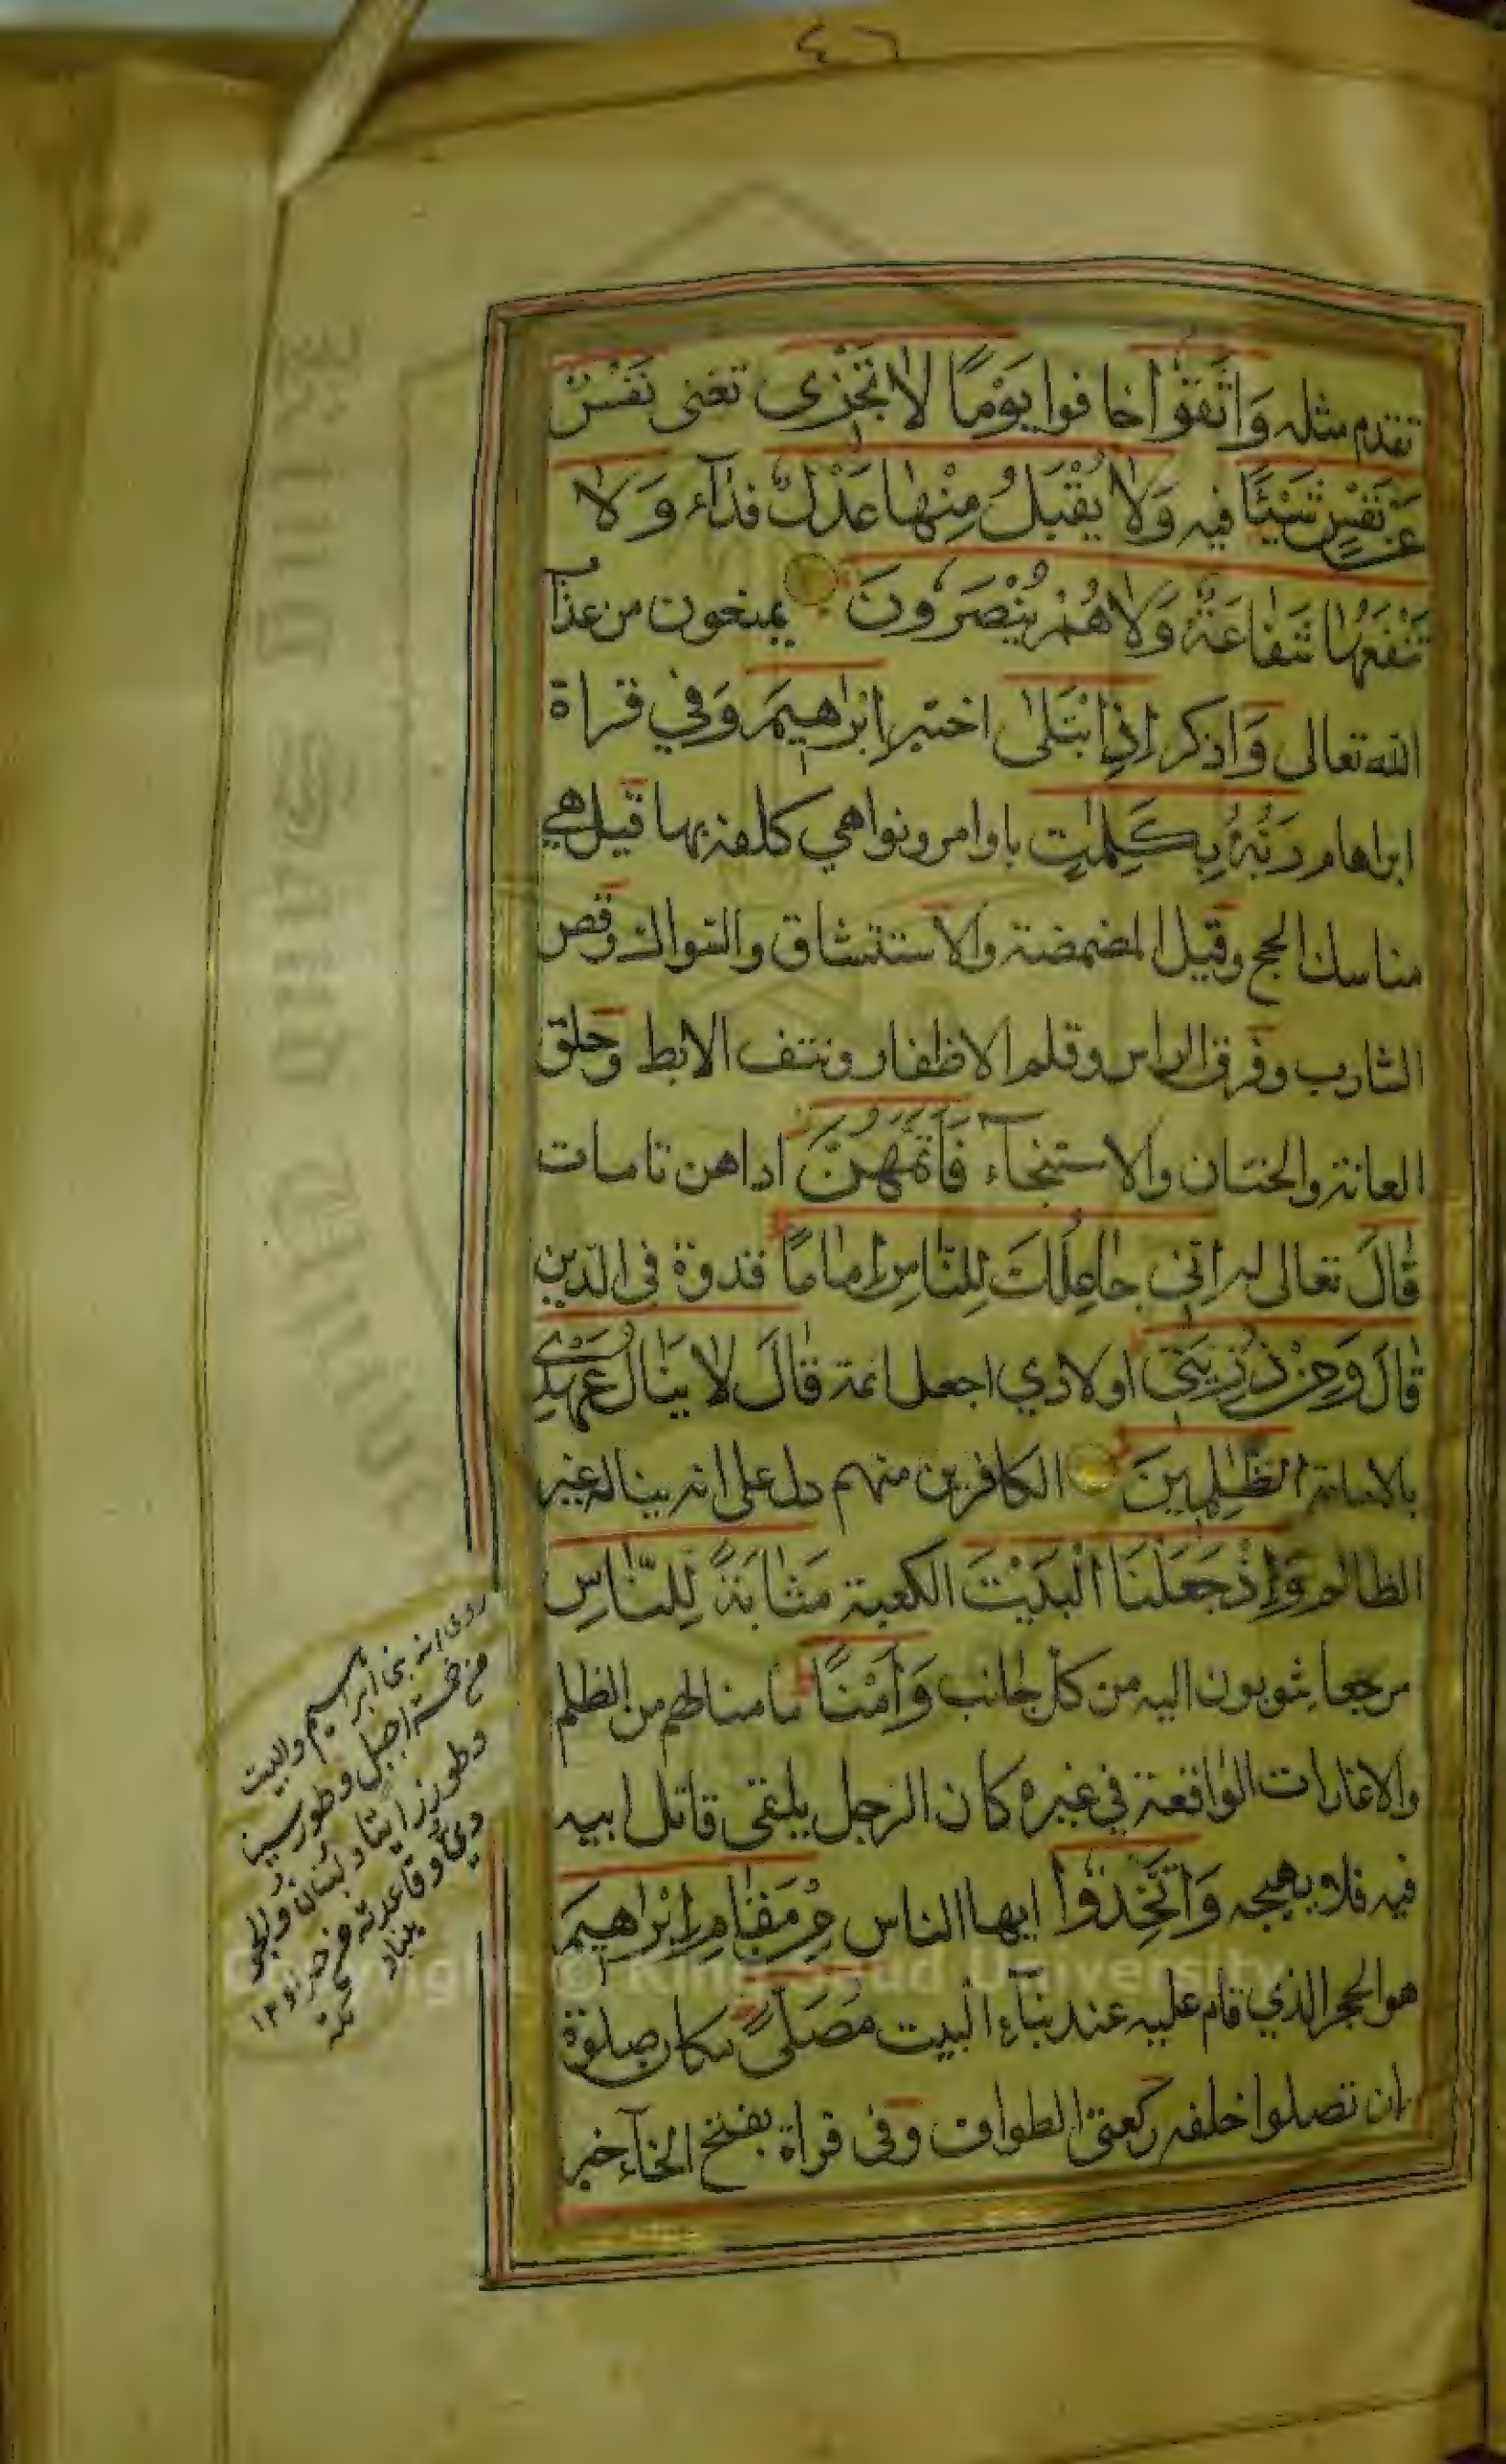 ٤٦
تقدم مثله وَاتَّقُوْا خافوا يَوْمًا لَا تَجْزِى تغنى نَفْسٌ
عَنْ نَفْسٍ شَيْئًا فيه وَلَا يُقْبَلُ مِنْهَا عَدْلٌ فداء وَلَا
تَنْفَعُهَا شَفَاعَةٌ وَلَا هُمْ يُنْصَرُونَ يمنعون من عذاب
الله تعالى وَاذكر إِذِ ابْتَلَىٰ اختبر إِبْرَاهِيمَ وَفي قراة
ابراهام رَبُّهُ بِكَلِمٰتٍ باوامر ونواهي كلفه بها قيل هي
مناسك الحج وقيل المضمضة والاستنشاق والسواك وقص
الشارب وفرق الراس وقلم الاظفار ونتف الابط وحلق
العانة والختان والاستنجاء فَأَتَمَّهُنَّ اداهن تامات
قَالَ تعالى له اِنّي جَاعِلُكَ لِلنَّاسِ إِمَامًا قدوة فى الدين
قَالَ وَمِنْ ذُرِّيَّتِى اولادي اجعل ائمة قَالَ لَا يَنَالُ عَهْدِي
بالامامة الظّٰلِمِينَ الكافرين منهم دل على انه يناله غير
الظالم وَإِذْ جَعَلْنَا الْبَيْتَ الكعبة مَثَابَةً لِلنَّاسِ
مرجعا يثوبون اليه من كل جانب وَأَمْنًا مامنا لهم من الظلم
والاغارات الواقعة في غيره كان الرجل يلتقى قاتل ابيه
فيه فلا يهيجه وَاتَّخِذُوا ايها الناس مِنْ مَقَامِ إِبْرَاهِيمَ
هو الحجر الذي قام عليه عند بناء البيت مُصَلًّى مكان صلوة
بان تصلوا خلفه ركعتى الطواف وفى قراة بفتح الخاء خبر
روى انه بنى ابراهيم والبيت
من خمسة اجبل وطور سينا
وطور زيتا ولبنان والجودي
Copyright © King Saud University